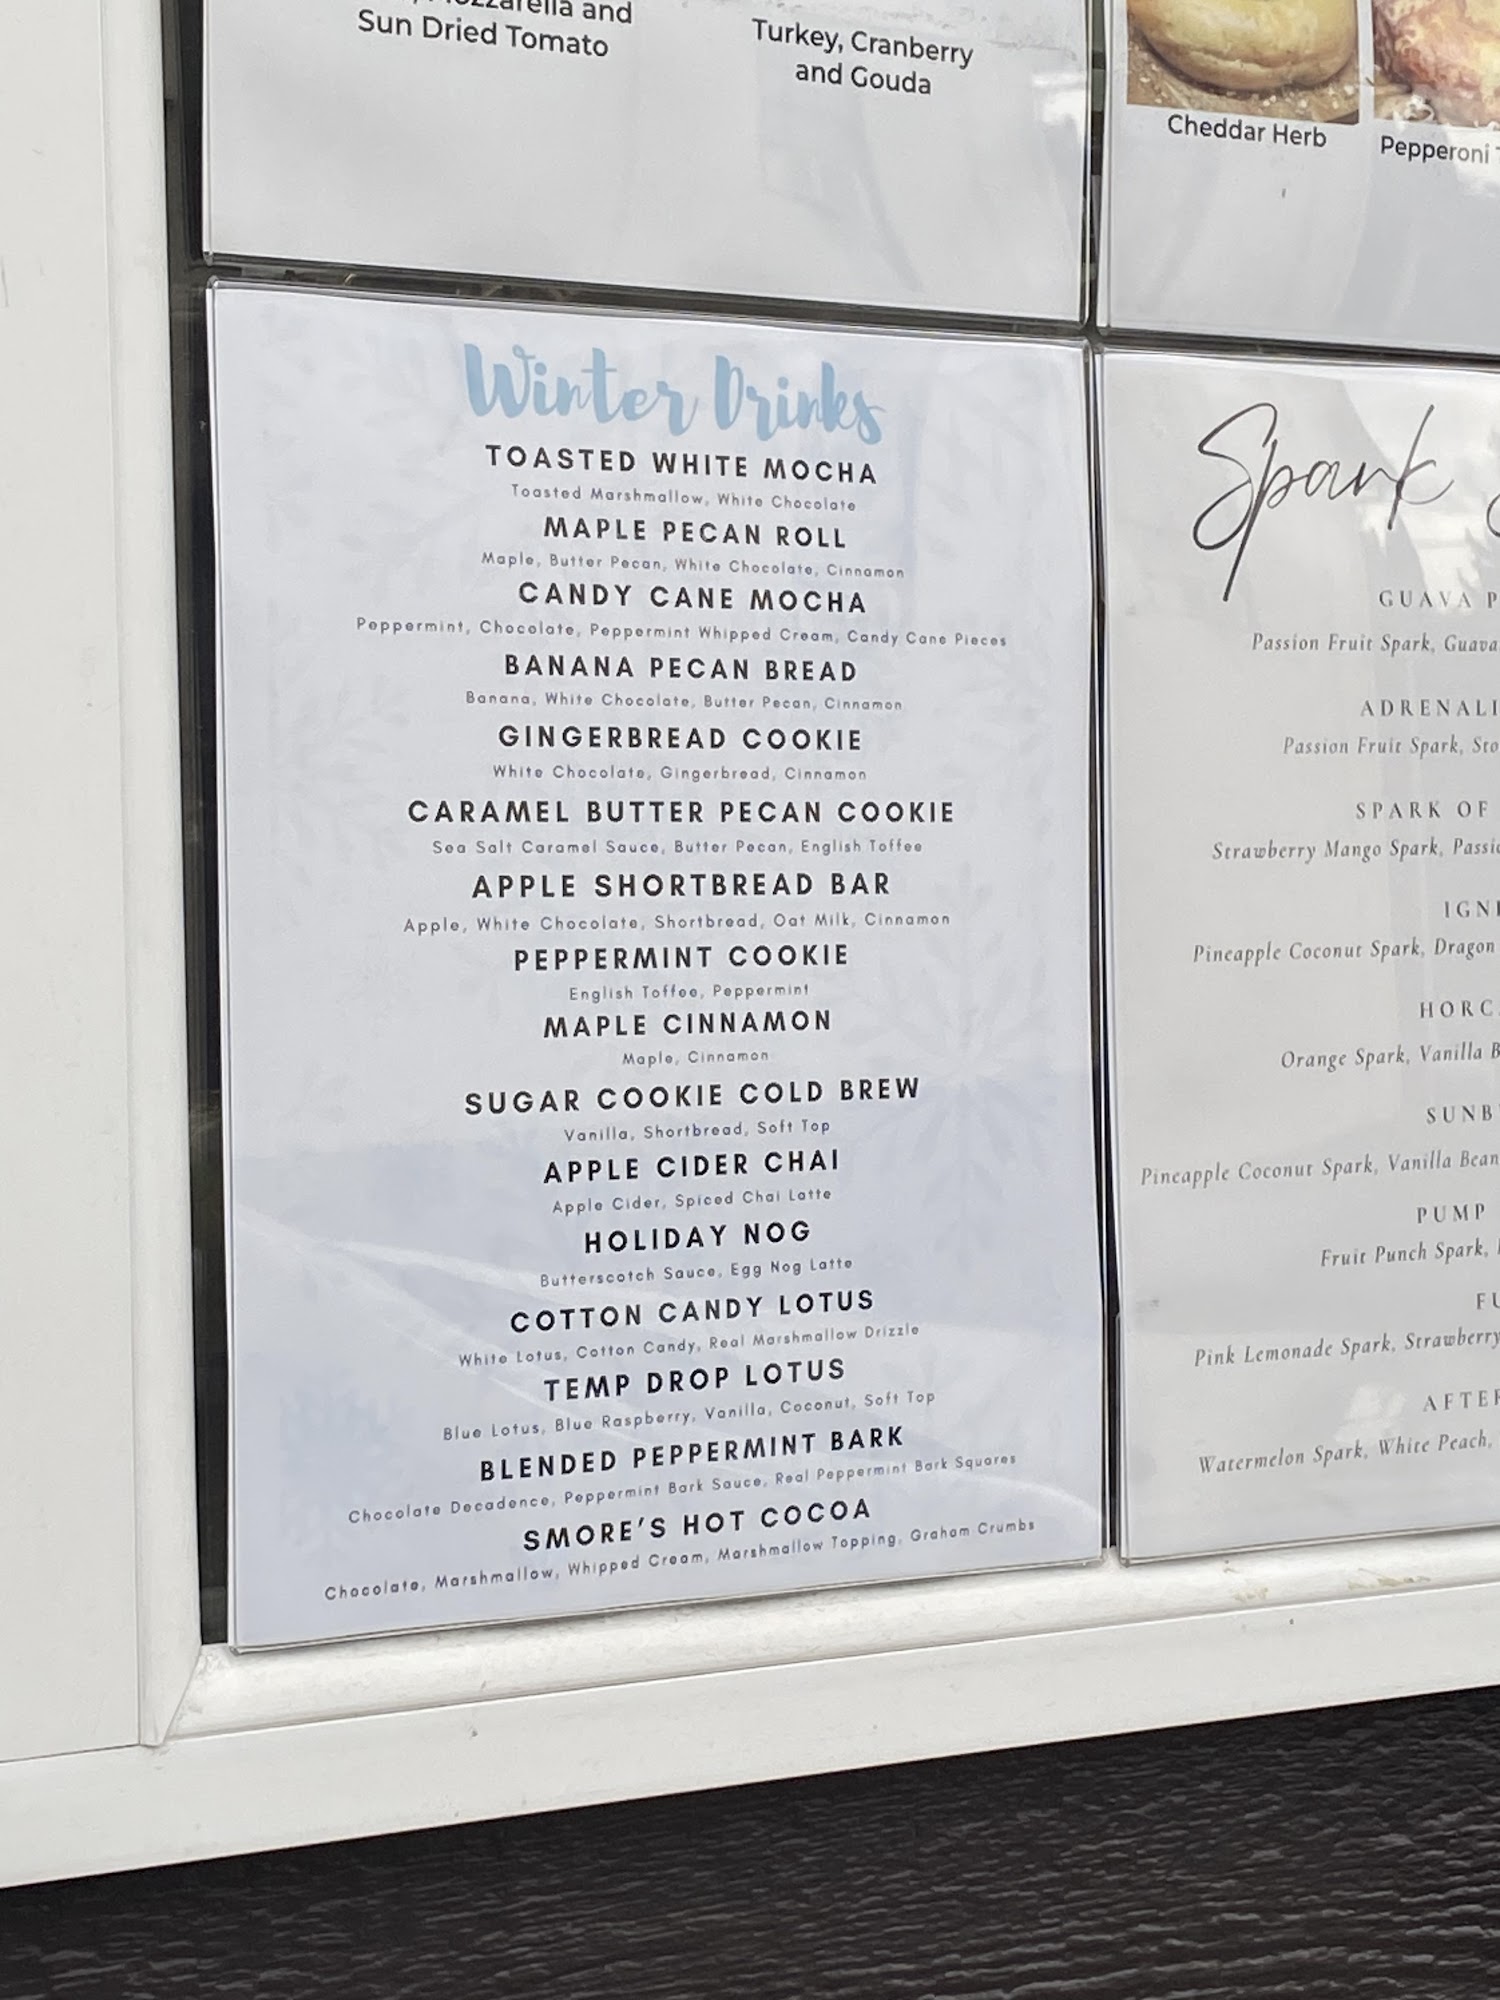 Mozzarella and
Sun Dried Tomato
Turkey, Cranberry
and Gouda
Cheddar Herb
Pepperoni
Winter Drinks
TOASTED WHITE MOCHA
Toasted Marshmallow, White Chocolate
MAPLE PECAN ROLL
Maple, Butter Pecan, White Chocolate, Cinnamon
CANDY CANE MOCHA
Peppermint, Chocolate, Peppermint Whipped Cream, Candy Cane Pieces
BANANA PECAN BREAD
Banana, White Chocolate, Butter Pecan, Cinnamon
GINGERBREAD COOKIE
White Chocolate, Gingerbread, Cinnamon
CARAMEL BUTTER PECAN COOKIE
Sea Salt Caramel Sauce, Butter Pecan, English Toffee
APPLE SHORTBREAD BAR
Apple, White Chocolate, Shortbread, Oat Milk, Cinnamon
PEPPERMINT COOKIE
English Toffee, Peppermint
MAPLE CINNAMON
Maple, Cinnamon
SUGAR COOKIE COLD BREW
Vanilla, Shortbread, Soft Top
APPLE CIDER CHAI
Apple Cider, Spiced Chai Latte
HOLIDAY NOG
Butterscotch Sauce, Egg Nog Latte
COTTON CANDY LOTUS
White Lotus, Cotton Candy, Real Marshmallow Drizzle
TEMP DROP LOTUS
Blue Lotus, Blue Raspberry, Vanilla, Coconut, Soft Top
BLENDED PEPPERMINT BARK
Chocolate Decadence, Peppermint Bark Sauce, Real Peppermint Bark Squares
SMORE'S HOT COCOA
Chocolate, Marshmallow, Whipped Cream, Marshmallow Topping, Graham Crumbs
Spark
GUAVA P
Passion Fruit Spark, Guava
ADRENALI
Passion Fruit Spark, Sto
SPARK OF
Strawberry Mango Spark, Passio
IGNI
Pineapple Coconut Spark, Dragon
HORC
Orange Spark, Vanilla B
SUNB
Pineapple Coconut Spark, Vanilla Bean
PUMP
Fruit Punch Spark,
FU
Pink Lemonade Spark, Strawberry
AFTER
Watermelon Spark, White Peach,